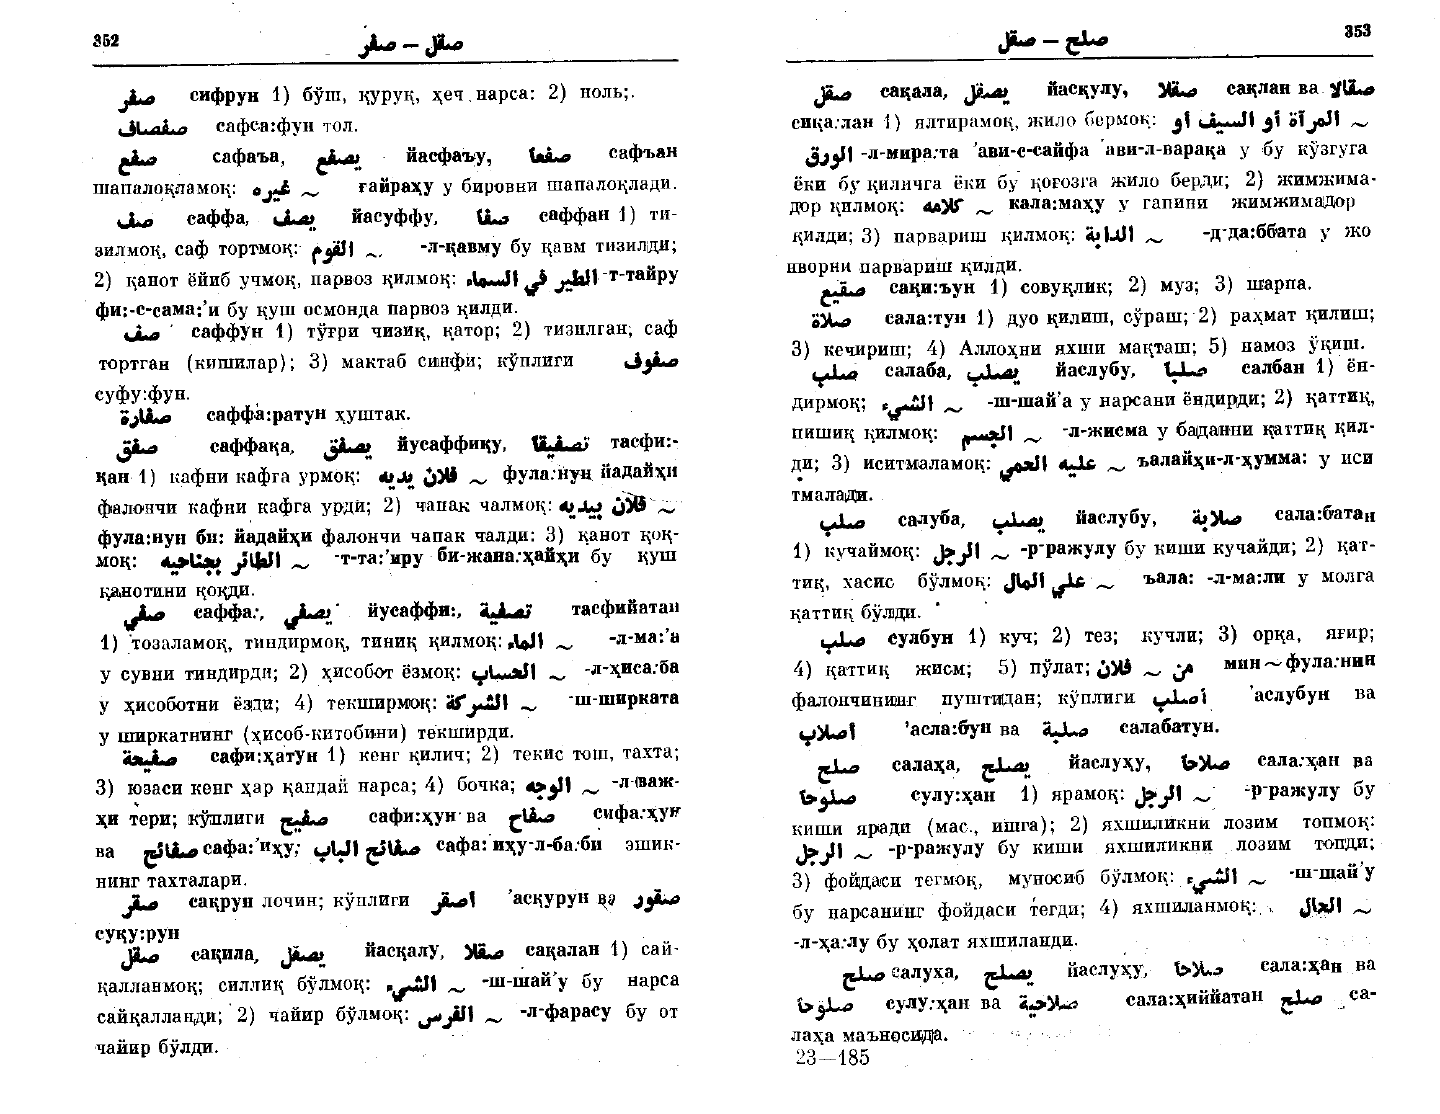 352
صقل — صفر
صفر сифрун 1) бўш, қуруқ, ҳеч нарса: 2) ноль;.
صفصاف сафса:фун тол.
صفع сафаъа, يصفع йасфаъу, صفعا сафъан
шапалоқламоқ: غيره ~ ғайраҳу у бировни шапалоқлади.
صف саффа, يصف йасуффу, صفا саффан 1) ти-
зилмоқ, саф тортмоқ: القوم ~ -л-қавму бу қавм тизилди;
2) қанот ёйиб учмоқ, парвоз қилмоқ: الطير في السماء -т-тайру
фи:-с-сама:’и бу қуш осмонда парвоз қилди.
صف саффун 1) тўғри чизиқ, қатор; 2) тизилган, саф
тортган (кишилар); 3) мактаб синфи; кўплиги صفوف
суфу:фун.
صفارة саффа:ратун ҳуштак.
صفق саффақа, يصفق йусаффиқу, تصفيقا тасфи:-
қан 1) кафни кафга урмоқ: فلان يديه ~ фула:нун йадайҳи
фалончи кафни кафга урди; 2) чапак чалмоқ: فلان بيديه ~
фула:нун би: йадайҳи фалончи чапак чалди: 3) қанот қоқ-
моқ: الطائر بجناحيه ~ -т-та:’иру би-жана:ҳайҳи бу қуш
қанотини қоқди.
صفي саффа:, يصفي йусаффи:, تصفية тасфийатан
1) тозаламоқ, тиндирмоқ, тиниқ қилмоқ: الماء ~ -л-ма:’а
у сувни тиндирди; 2) ҳисобот ёзмоқ: الحساب ~ -л-ҳиса:ба
у ҳисоботни ёзди; 4) текширмоқ: الشركة ~ -ш-ширката
у ширкатнинг (ҳисоб-китобини) текширди.
صفيحة сафи:ҳатун 1) кенг қилич; 2) текис тош, тахта;
3) юзаси кенг ҳар қандай нарса; 4) бочка; الوجه ~ -л-важ-
ҳи тери; кўплиги صفيح сафи:ҳун ва صفاح сифа:ҳун
ва صفائح сафа:’иҳу; صفائح الباب сафа: иҳу-л-ба:би эшик-
нинг тахталари.
صقر сақрун лочин; кўплиги اصقر ’асқурун ва صقور
суқу:рун
صقل сақила, يصقل йасқалу, صقلا сақалан 1) сай-
қалланмоқ; силлиқ бўлмоқ: الشيء ~ -ш-шай’у бу нарса
сайқалланди; 2) чайир бўлмоқ: الفرس ~ -л-фарасу бу от
чайир бўлди.
صلح — صقل
353
صقل сақала, يصقل йасқулу, صقلا сақлан ва صقالا
сиқа:лан 1) ялтирамоқ, жило бермоқ: المرآة أو السيف أو ~
الورق -л-мира:та ’ави-с-сайфа ’ави-л-варақа у бу кўзгуга
ёки бу қиличга ёки бу қоғозга жило берди; 2) жимжима-
дор қилмоқ: كلامه ~ кала:маҳу у гапини жимжимадор
қилди; 3) парвариш қилмоқ: الدابة ~ -д-да:ббата у жо
нворни парвариш қилди.
صقيع сақи:ъун 1) совуқлик; 2) муз; 3) шарпа.
صلاة сала:тун 1) дуо қилиш, сўраш; 2) раҳмат қилиш;
3) кечириш; 4) Аллоҳни яхши мақташ; 5) намоз ўқиш.
صلب салаба, يصلب йаслубу, صلبا салбан 1) ён-
дирмоқ; الشيء ~ -ш-шай’а у нарсани ёндирди; 2) қаттиқ,
пишиқ қилмоқ: الجسم ~ -л-жисма у баданни қаттиқ қил-
ди; 3) иситмаламоқ: عليه الحمى ~ ъалайҳи-л-ҳумма: у иси
тмалади.
صلب салуба, يصلب йаслубу, صلابة сала:батан
1) кучаймоқ: الرجل ~ -р-ражулу бу киши кучайди; 2) қат-
тиқ, хасис бўлмоқ: علي المال ~ ъала: -л-ма:ли у молга
қаттиқ бўлди.
صلب сулбун 1) куч; 2) тез; кучли; 3) орқа, яғир;
4) қаттиқ жисм; 5) пўлат; من ~ فلان мин ~ фула:нин
фалончининг пуштидан; кўплиги أصلب ’аслубун ва
أصلاب ’асла:бун ва صلبة салабатун.
صلح салаҳа, يصلح йаслуҳу, صلاحا сала:ҳан ва
صلوحا сулу:ҳан 1) ярамоқ: الرجل ~ -р-ражулу бу
киши яради (мас., ишга); 2) яхшиликни лозим топмоқ:
الرجل ~ -р-ражулу бу киши яхшиликни лозим топди;
3) фойдаси тегмоқ, муносиб бўлмоқ: الشيء ~ -ш-шай’у
бу нарсанинг фойдаси тегди; 4) яхшиланмоқ: الحال ~
-л-ҳа:лу бу ҳолат яхшиланди.
صلح салуха, يصلح йаслуҳу, صلاحا сала:ҳан ва
صلوحا сулу:ҳан ва صلاحية сала:ҳиййатан صلح са-
лаҳа маъносида.
23—185